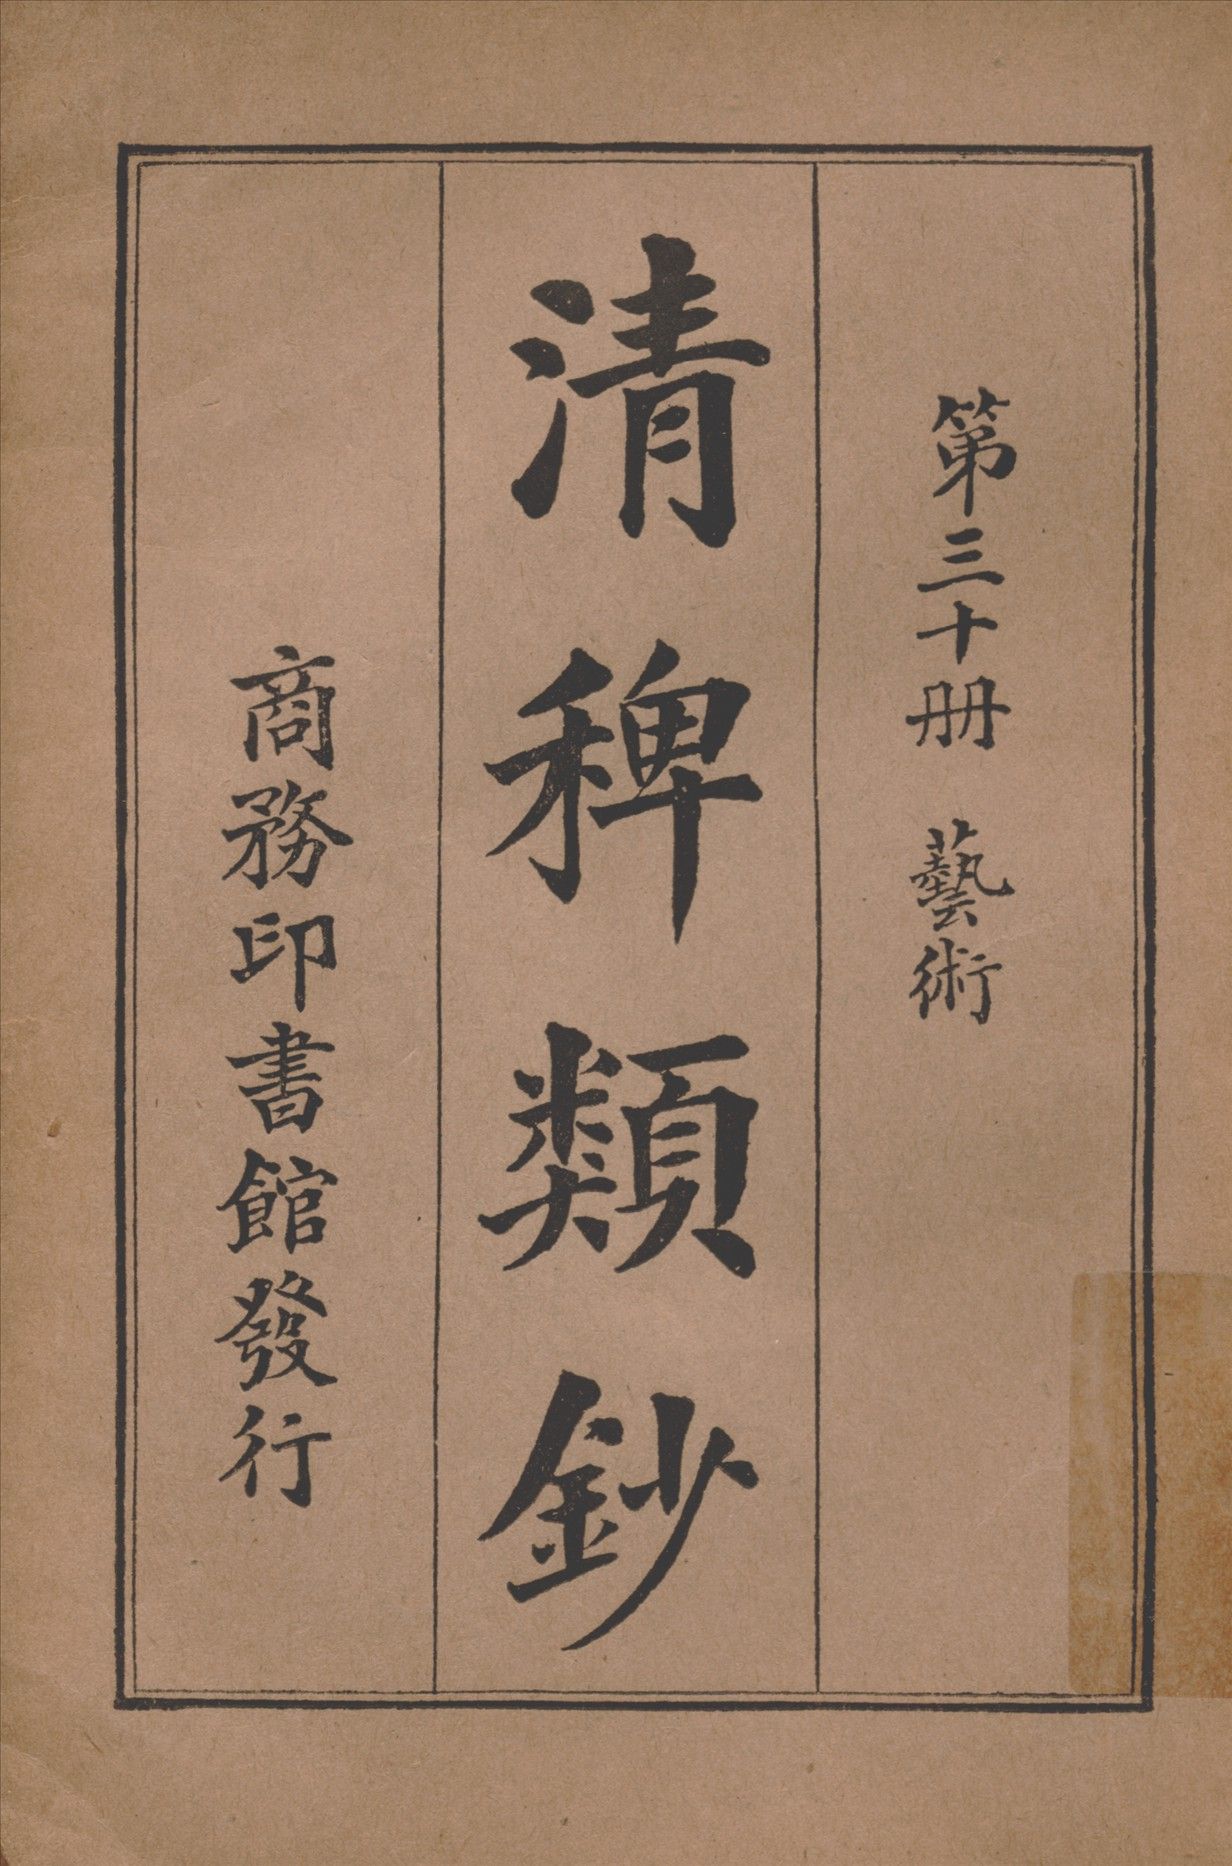 第三十册 藝術
清稗類鈔
商務印書館發行